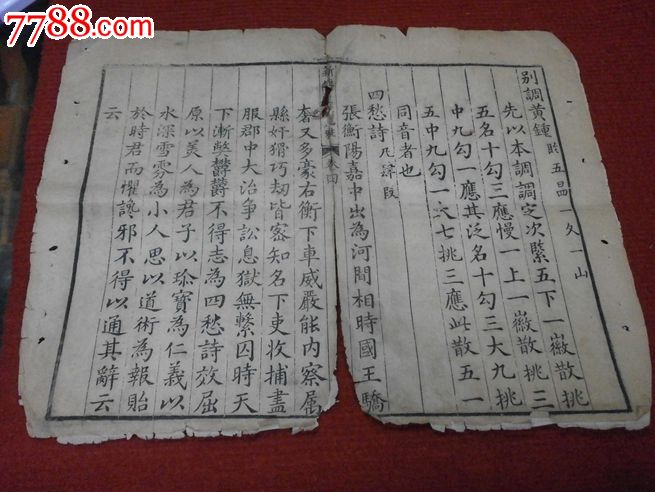 7788.com
别調黄鍾
五
一
先以本調調定次緊五下一徽散挑
五名十勾三應慢一上一徽散挑三
中九勾一應其泛名十勾三大九挑
五中九勾一六七挑三應此散五一
同音者也
四愁詩
張衡陽嘉中出為河間相時國王驕
新
卷四
奢又多豪右衡下車威嚴能内察屬
縣奸猾巧刼皆密知名下吏收捕盡
服郡中大治爭訟息獄無繫囚時天
下漸獘欝欝不得志為四愁詩效屈
原以美人為君子以珍寳為仁義以
水深雪雰為小人思以道術為報貽
於時君而懼讒邪不得以通其辭云
云
7788.com